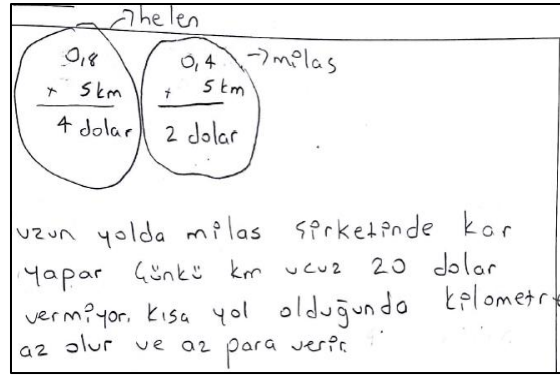 →helen
0,8
x 5km
4 dolar
0,4 →milas
x 5km
2 dolar
uzun yolda milas şirketinde kar
yapar Çünkü km ucuz 20 dolar
vermiyor. Kısa yol olduğunda kilometre
az olur ve az para verir.